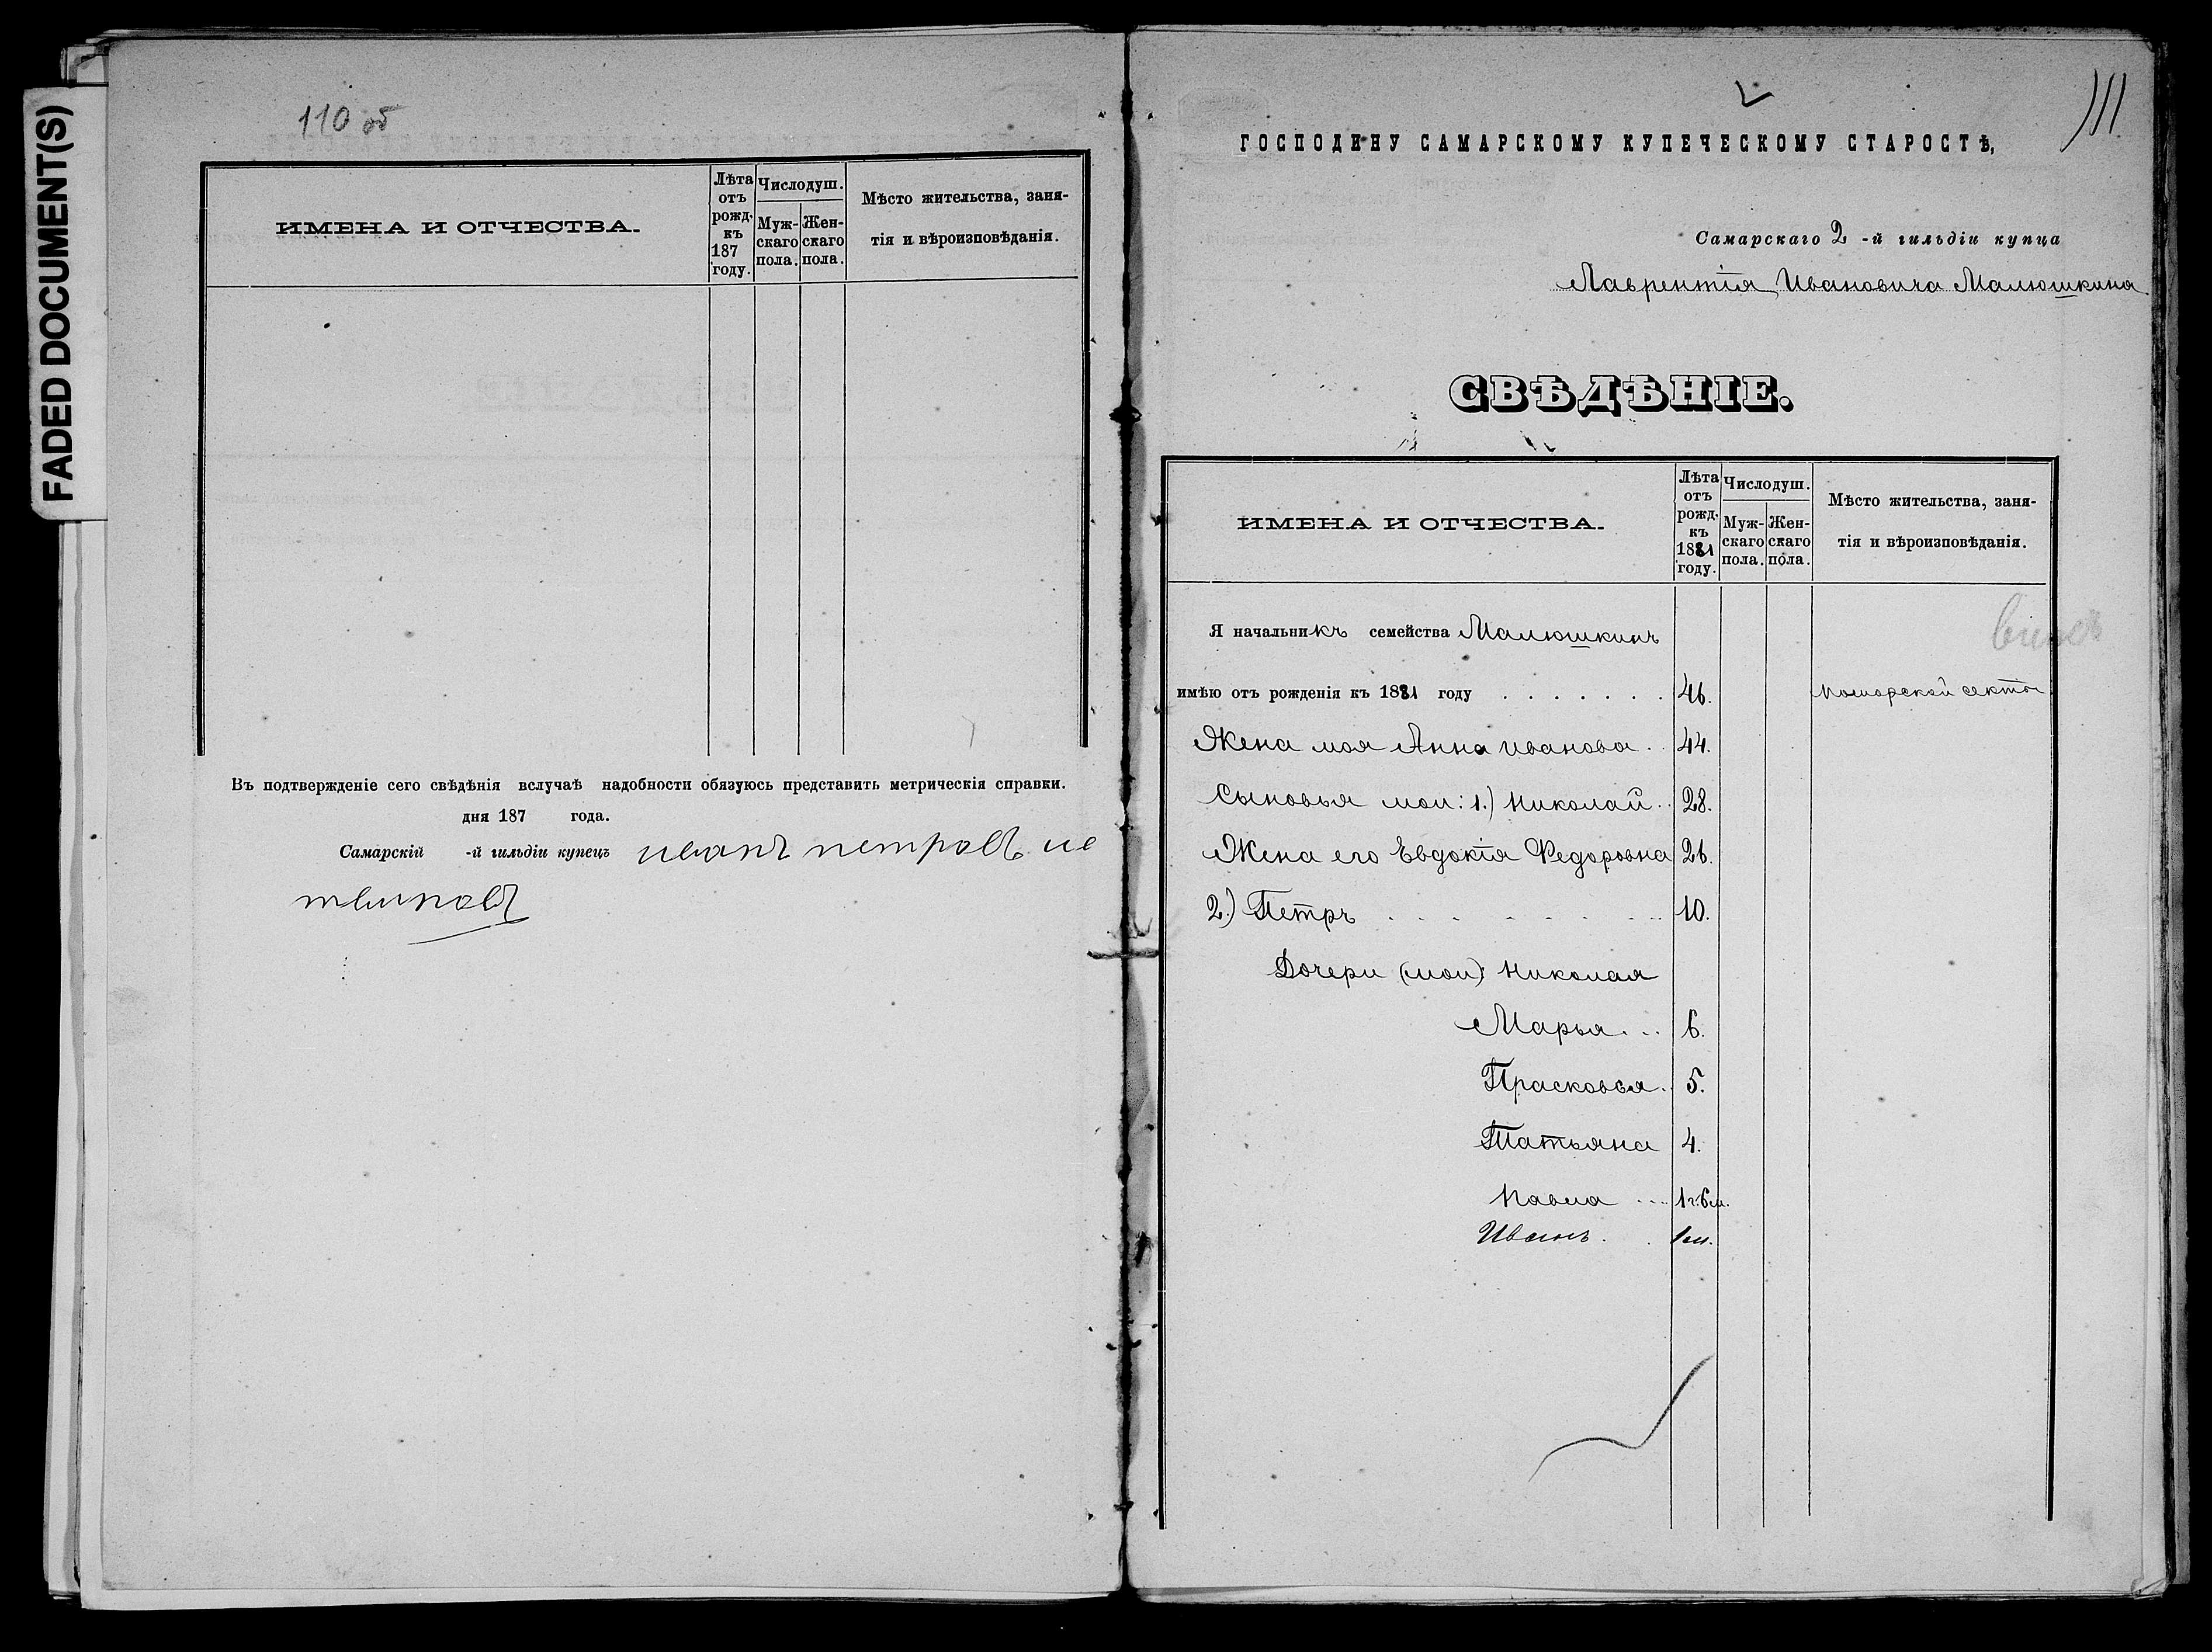 FADED DOCUMENT(S)
110 об
ИМЕНА И ОТЧЕСТВА.
Лѣта отъ рожд. къ 187 году.
Числодуш.
Мужскаго пола.
Женскаго пола.
Мѣсто жительства, заня-
тія и вѣроизповѣданія.
Въ подтвержденіе сего свѣдѣнія вслучаѣ надобности обязуюсь представить метрическія справки.
дня 187 года.
Самарскій -й гильдіи купецъ иванъ петровъ
111.
ГОСПОДИНУ САМАРСКОМУ КУПЕЧЕСКОМУ СТАРОСТѢ,
Самарскаго 2 -й гильдіи купца
Лаврентія Ивановича Малюшкина
СВѢДѢНІЕ.
ИМЕНА И ОТЧЕСТВА.
Лѣта отъ рожд. къ 1881 году.
Числодуш.
Мужскаго пола.
Женскаго пола.
Мѣсто жительства, заня-
тія и вѣроизповѣданія.
Я начальникъ семейства Малюшкинъ
имѣю отъ рожденія къ 1881 году 46. Поморской секты
Жена моя Анна иванова 44.
Сыновья мои: 1.) Николай 28.
Жена его Евдокія Федоровна 26.
2.) Петръ 10.
Дочери (мои) Николая
Марья 6.
Прасковья 5.
Татьяна 4.
Павла 1г.6м.
Иванъ. 1м.